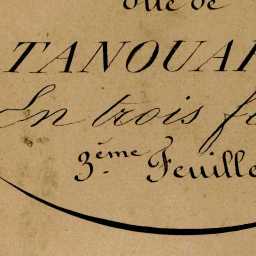 TANOUA
En trois
3.ème Feuille